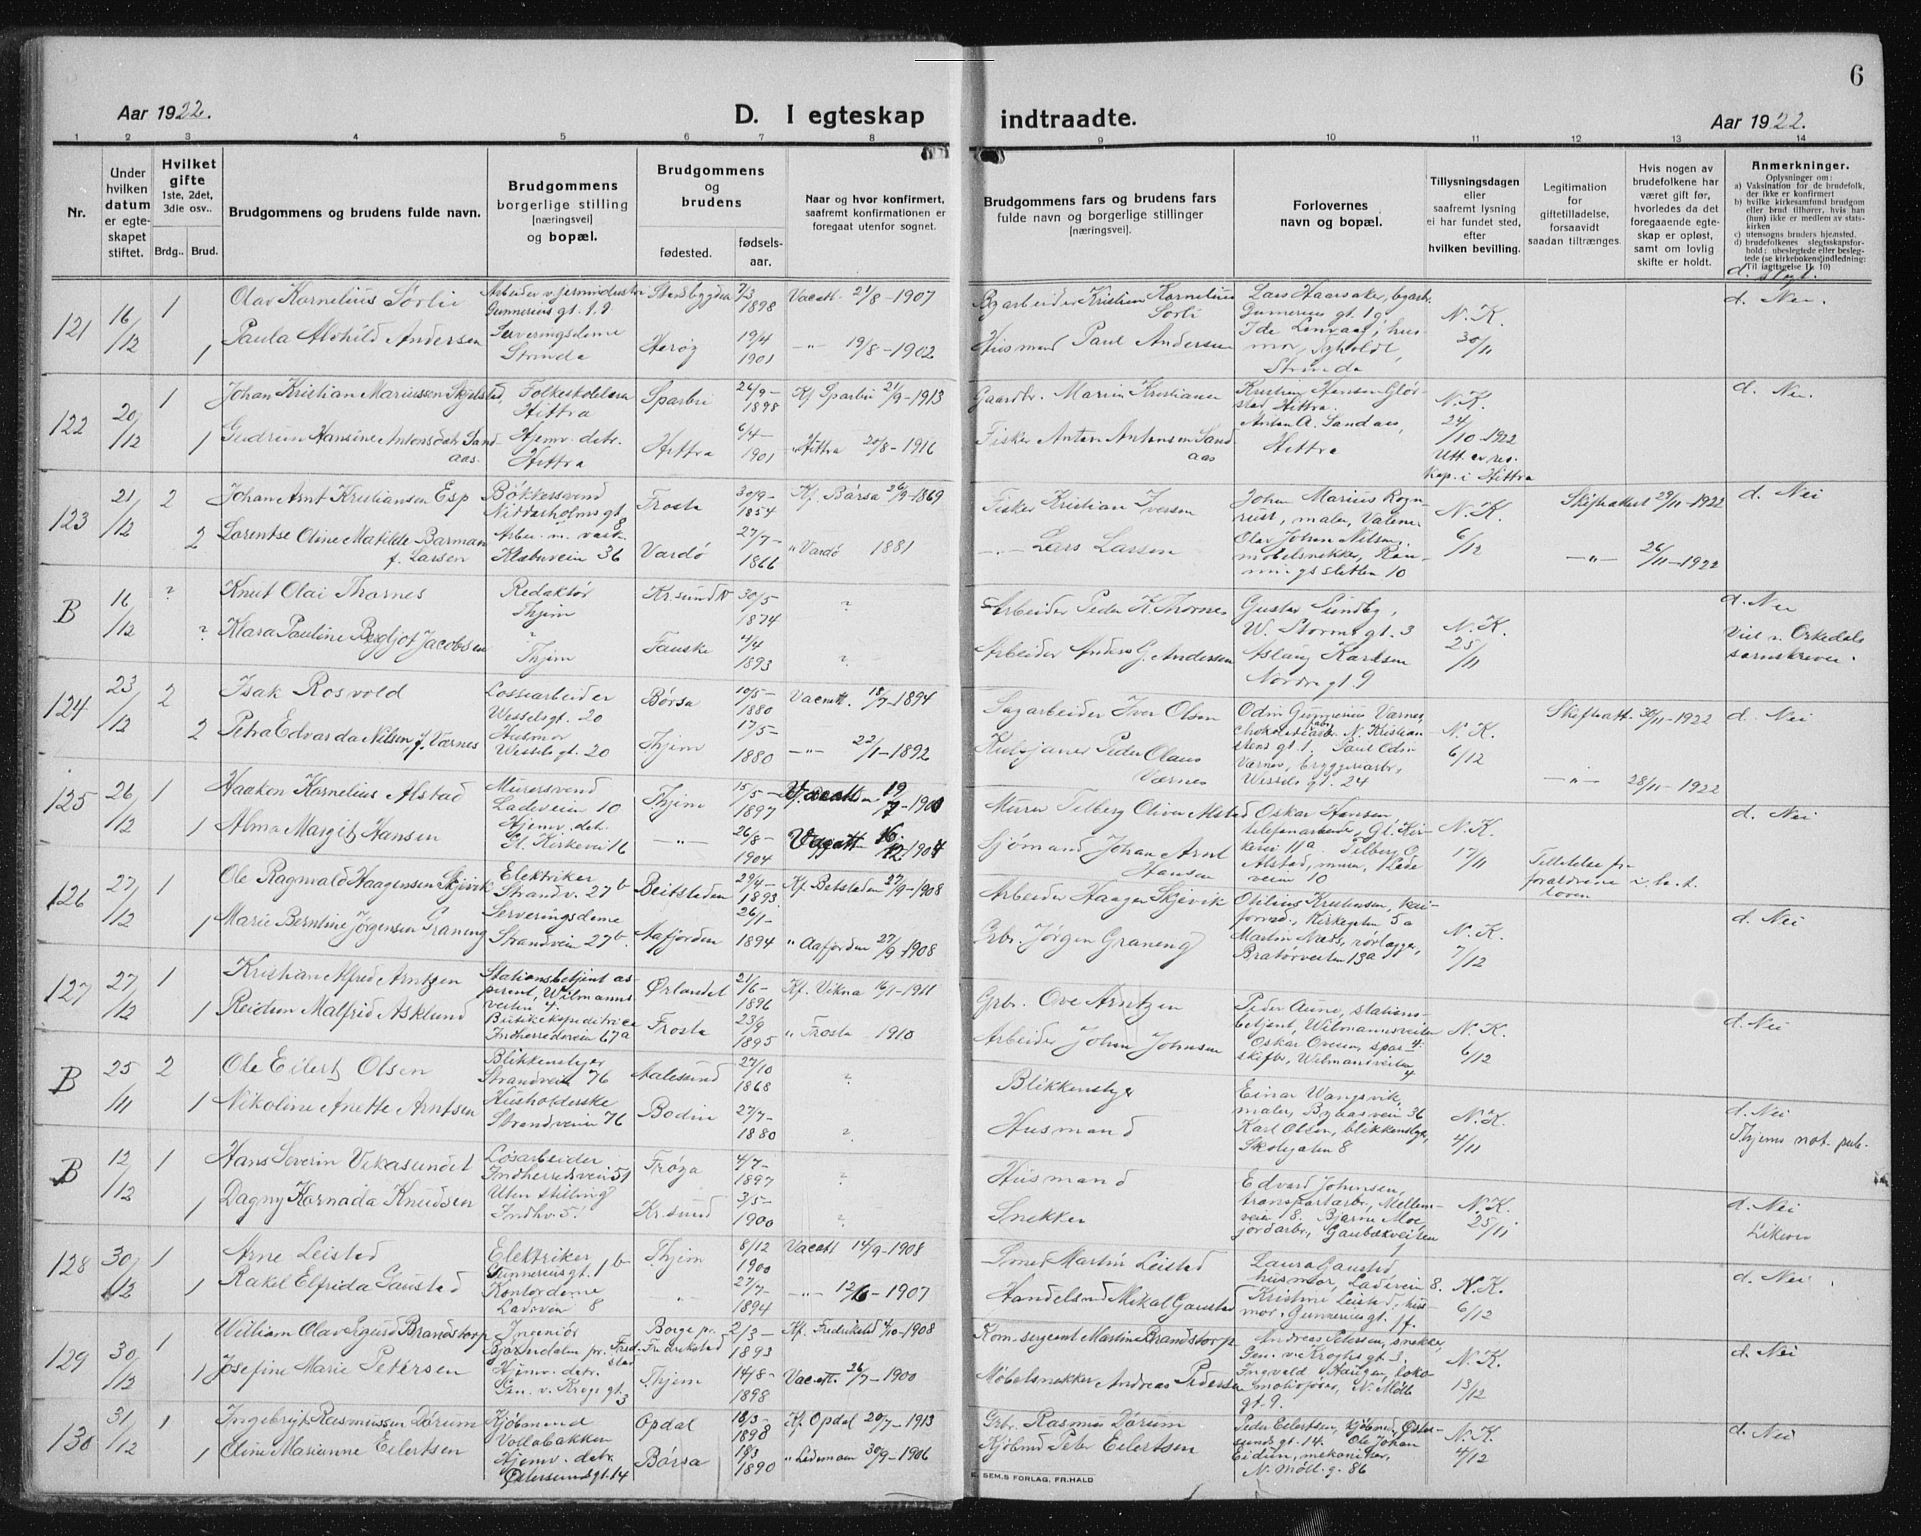 6
Aar 1922.
D. I egteskap indtraadte.
Aar 1922.
1 2 3 4 5 6 7 8 9 10 11 12 13 14
Nr.
Under hvilken datum er egteskapet stiftet.
Hvilket gifte 1ste, 2det, 3die osv..
Brdg.. Brud.
Brudgommens og brudens fulde navn.
Brudgommens borgerlige stilling [næringsvei] og bopæl.
Brudgommens og brudens
fødested.
fødselsaar.
Naar og hvor konfirmert, saafremt konfirmationen er foregaat utenfor sognet.
Brudgommens fars og brudens fars fulde navn og borgerlige stillinger [næringsvei].
Forlovernes navn og bopæl.
Tillysningsdagen eller saafremt lysning ei har fundet sted, efter hvilken bevilling.
Legitimation for giftetilladelse, forsaavidt saadan tiltrænges.
Hvis nogen av brudefolkene har været gift før, hvorledes da det foregaaende egteskap er opløst, samt om lovlig skifte er holdt.
Anmerkninger.
Oplysninger om:
a) Vaksination for de brudefolk, der ikke er konfirmert
b) hvilke kirkesamfund brudgom eller brud tilhører, hvis han (hun) ikke er medlem av statskirken
c) utensogns bruders hjemsted.
d) brudefolkenes slegtsskapsforhold: ubeslegtede eller beslegtede (se kirkebokens indledning: Til iagttagelse II. 10)
d. slegt.
121 16/12 1 Olav Kornelius Sørli Arbeider v. jernindustri Gunnerius gt. 19 Stadsbygden 7/3 1898 Vacatt. 21/8-1907 Byarbeider Kristian Kornelius Sørli Lars Haarsaker, byarb. Gunnerius gt. 19 N.K. 30/11 d. Nei.
1 Paula Alvhild Andersen Serveringsdame Strinda Herøy 19/4 1901 -"- 19/8-1902 Husmand Paul Andersen Ida Linvaag, husmor, Strinda
122 20/12 1 Johan Kristian Mariussen Skjelstad, Folkeskolelærer Hittra Sparbu 26/9-1898 Kf. Sparbu 21/9-1913 Gaardbr. Marius Kristiansen Kristian Hansen Glørstad Hittra. N.K. 24/10-1922 Utt. av res. kap. i Hittra d. Nei.
1 Gudrun Hansine Antonsdatr Sandaas. Hjemv. datr. Hittra Hittra 6/4-1901 " Hittra 20/8-1916 Fisker Anton Antonsen Sandaas Anton A. Sandaas, Hittra
123 21/12 2 Johan Arnt Kristiansen Esp Bøkkersvend Nidarholms gt. 8 Frosta 30/9-1854 Kf. Børsa 26/9-1869 Fisker Kristian Iversen Johan Marius Rognrust, maler, N.K. 6/12 Skifteattest 29/11-1922 d. Nei
2 Lorentse Oline Matilde Barman f. Larsen Klæbuvein 36 Vardø 27/7-1866 " Vardø 1881 -"- Lars Larsen Olav Johan Nilsen, møbelsnekker, Ronningsletten 10 -"- 26/11-1922
B 16/12 ? Knut Olai Thornes Redaktør Thjem Kr.sund N 30/5 1874 ? Arbeider Peder K. Thornes Gustav Sundby, W. Storms gt. 3 N.K. 25/11 d. Nei
? Klara Pauline Bergljot Jacobsen ? Thjem Fauske 4/4 1893 ? Arbeider Anders G. Andersen Aslaug Karlsen Nordre gt. 9 Viet v. Orkedals sorenskriver.
124 23/12 2 Isak Rosvold Lossearbeider Wesselsgt. 20 Børsa 10/5-1880 Vacatt. 18/7-1894 Sagarbeider Iver Olsen Odin Gunnerius Værnes, chokoladearb. N. Kristianstens gt. 1. N.K. 6/12 Skifteatt. 30/11-1922 d. Nei
2 Petra Edvarda Nilsen f. Værnes Husmor Wesselsgt. 20 Thjem 17/5-1880 -"- 22/1-1892 Kulsjauer Peder Olaus Værnes Paul Odin Værnes, bryggeriarb., Wessels gt. 24 -"- 28/11-1922
125 26/12 1 Haakon Kornelius Alstad Murersvend Ladeveien 10 Thjem 15/5-1897 Murer Telberg Oliver Alstad Oskar Hansen, telefonarbeider, Gl. Kirkevei 11a N.K. 17/11 d. Nei
1 Alma Margit Hansen Hjemv. datr. Gl. Kirkevei 16 -"- 26/8-1904 Sjømand Johan Arnt Hansen Telberg O. Alstad, murer, Ladeveien 10 Tilladelse fra forældrene i h.t. loven
126 27/12 1 Ole Ragnvald Haagensen Skjevik Elektriker Strandv. 27b Beitstaden 29/4-1893 Kf. Betstaden 27/9-1908 Arbeider Haagen Skjevik Otilius Kristiansen, Kirkegaten 5a N.K. 7/12 d. Nei
1 Marie Berntine Jørgensen Graneng Serveringsdame Strandveien 27b. Aafjorden 26/1-1894 " Aafjorden 27/9-1908 Grbr. Jørgen Graneng Martin Næss, rørlægger, Bratørveiten 13a
127 27/12 1 Kristian Alfred Arntzen Stationsbetjent aspirant, Wilmannsveiten 4. Ørlandet 21/6-1896 Kf. Vikna 16/1-1911 Grbr. Ove Arntzen Peder Aune, stationsbetjent, Wilmannsveiten 4 N.K. 6/12 d. Nei
1 Reidun Malfrid Asklund Butikekspeditrice Indherredsveien 67a Frosta 23/9 1895 " Frosta 1910 Arbeider Johan Johnsen Oskar Ovesen, Wilmansveiten 4
B 25/11 2 Ole Eilert Olsen Blikkenslager Strandveien 76 Aalesund 27/10 1868 ? Blikkenslager Einar Wangsvik, maler, Byaasveien 36 N.K. 4/11 d. Nei
1 Nikoline Anette Arntsen Husholderske Strandveien 76 Bodin 27/7-1880 ? Husmand Karl Olsen, blikkenslager, Skolegaten 8 Thjems not. publ.
B 12/12 1 Hans Severin Vikasundet Løsarbeider Indherredsveien 51 Frøya 4/7-1897 ? Husmand Edvard Johnsen, transportarb., Mellemveien 8. N.K. 25/11 d. Nei
1 Dagny Kornada Knudsen Uten stilling Indhv. 51 Kr.sund 3/5-1900 ? Snekker Bjarne Moe, jordarb., Gaubækveiten Likeens
128 30/12 1 Arne Leistad Elektriker Gunneriusgt. 1b Thjem 8/12 1900 Vacatt 14/9-1908 Smed Martin Leistad Laura Gaustad husmor, Ladeveien 8. N.K. 6/12 d. Nei
1 Rakel Elfrida Gaustad Kontordame Ladeveien 8 -"- 27/7-1894 -"- 12/6-1907 Handelsmd Mikal Gaustad Kristine Leistad, husmor, Gunneriusgt. 1f.
129 30/12 1 William Olav Sigurd Brandstorp Ingeniør Bjørndalen pr. Fredrikstad Borge pr. Fredrikstad 2/3-1893 Kf. Fredrikstad 4/10-1908 Kom. sergeant Martin Brandstorp Andreas Petersen, snekker, Gen. v. Kroghs gt. 3. N.K. 13/12 d. Nei
1 Josefine Marie Petersen Hjemv. datr. Gen. v. Krogs gt. 3 Thjem 14/8-1898 Vacatt. 26/7-1900 Møbelsnekker Andreas Pedersen Ingvald Hauger, lokomotivfører, N. Møllegt. 9.
130 31/12 1 Ingebrigt Rasmussen Dørum Kjøbmand Vollabakken Opdal 18/3-1898 Kf. Opdal 20/7-1913 Grbr. Rasmus Dørum Peder Eilertsen, kjøbmd, Østersunds gt. 14. N.K. 4/12 d. Nei
1 Oline Marianne Eilertsen Hjemv. datr. Østersundsgt. 14 Børsa 18/3 1890 30/9-1906 Kjøbmd Peter Eilertsen Ole Johan Eidum, mekaniker, N. Møll. g. 86
E. SEM.S FORLAG, FR.HALD